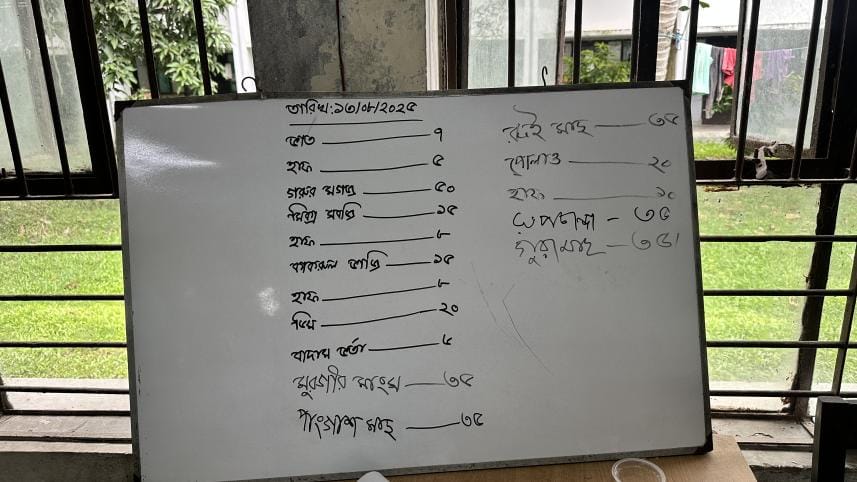 তারিখ: ১৩/০৮/২০২৫
ভাত — ৭
হাফ — ৫
গরুর মাংস — ৫০
মিক্স সবজি — ১৫
হাফ — ৮
হাফ — ৮
ডিম — ২০
বাদাম ভর্তা — ৮
মুরগীর মাংস — ৩৫
পাংগাশ মাছ — ৩৫
রুই মাছ — ৩৫
পোলাও — ২০
হাফ — ১০
রূপচান্দা — ৩৫
গুরামাছ — ৩৫